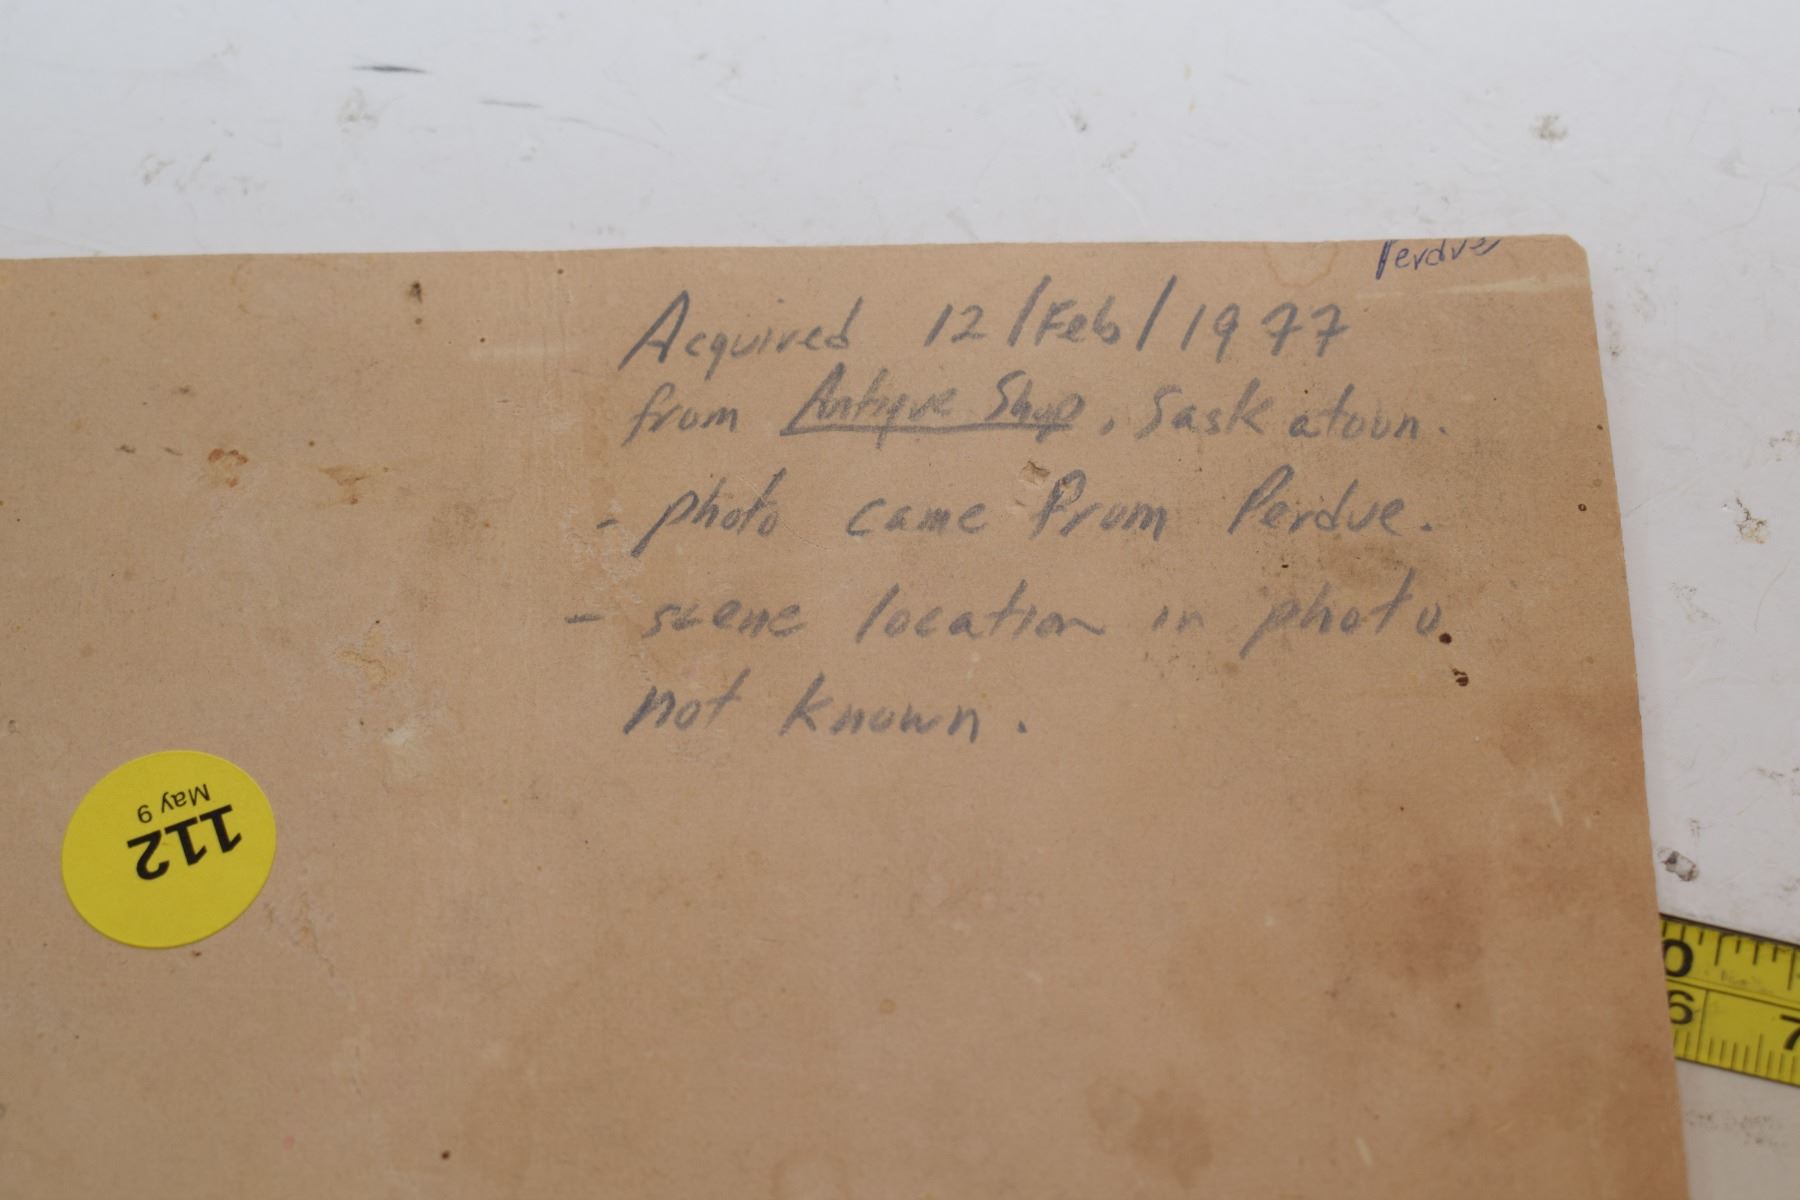 Perdue
Acquired 12/Feb/1977
from Antique Shop, Saskatoon.
- photo came from Perdue.
- scene location in photo
not known.
112
May 9
0
6
7